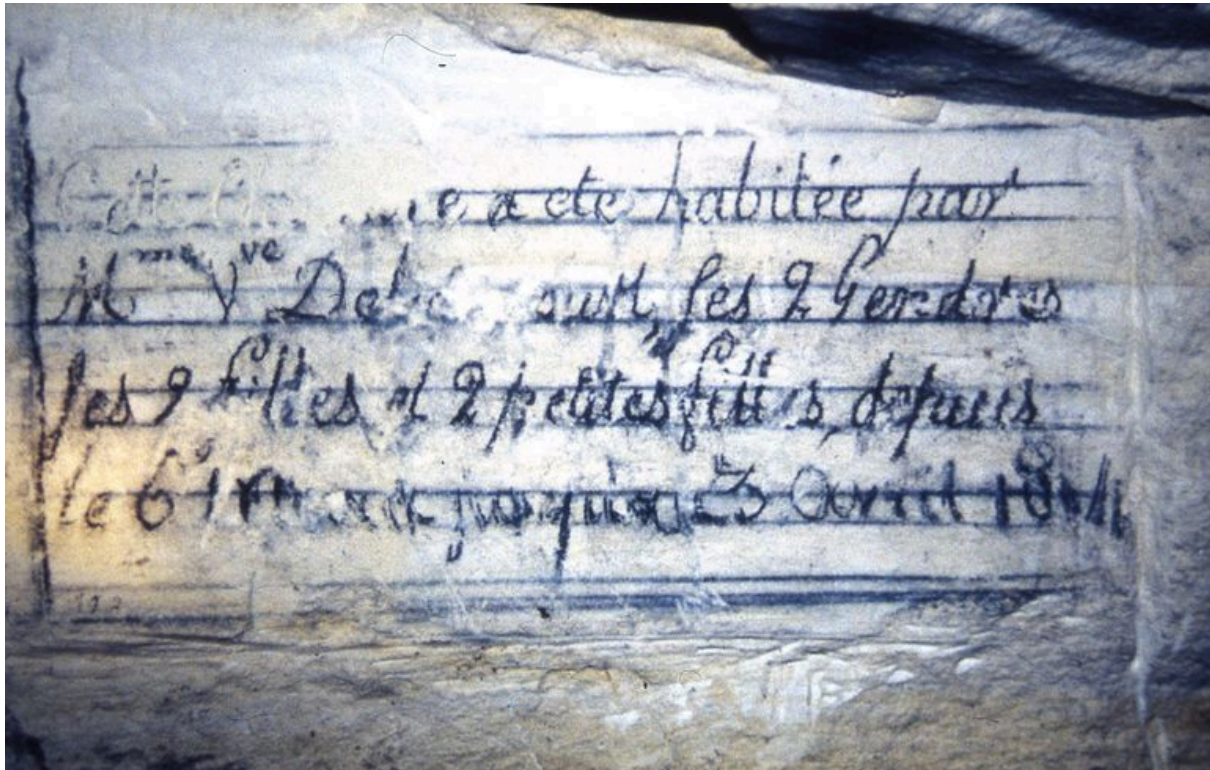 Cette a ete habitée par
Mme Vve les 2 Gendres
les 2 filles et 2 petites filles, depuis
le 6 jusqu'au 3 Avril 1814